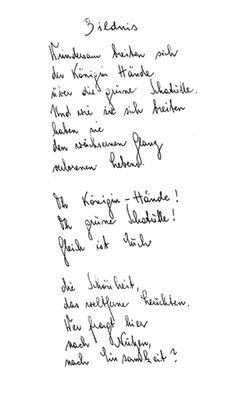 Bildnis
Wundersam breiten sich
der Königin Hände
über die grüne Schatulle.
Und wie sie sich breiten
haben sie
den wächsernen Glanz
verlorenen Lebens.
Oh Königin-Hände!
Oh grüne Schatulle!
Gleich ist Euch
die Schönheit,
das weltferne Leuchten.
Wer fragt hier
nach Nutzen,
nach Einsamkeit?